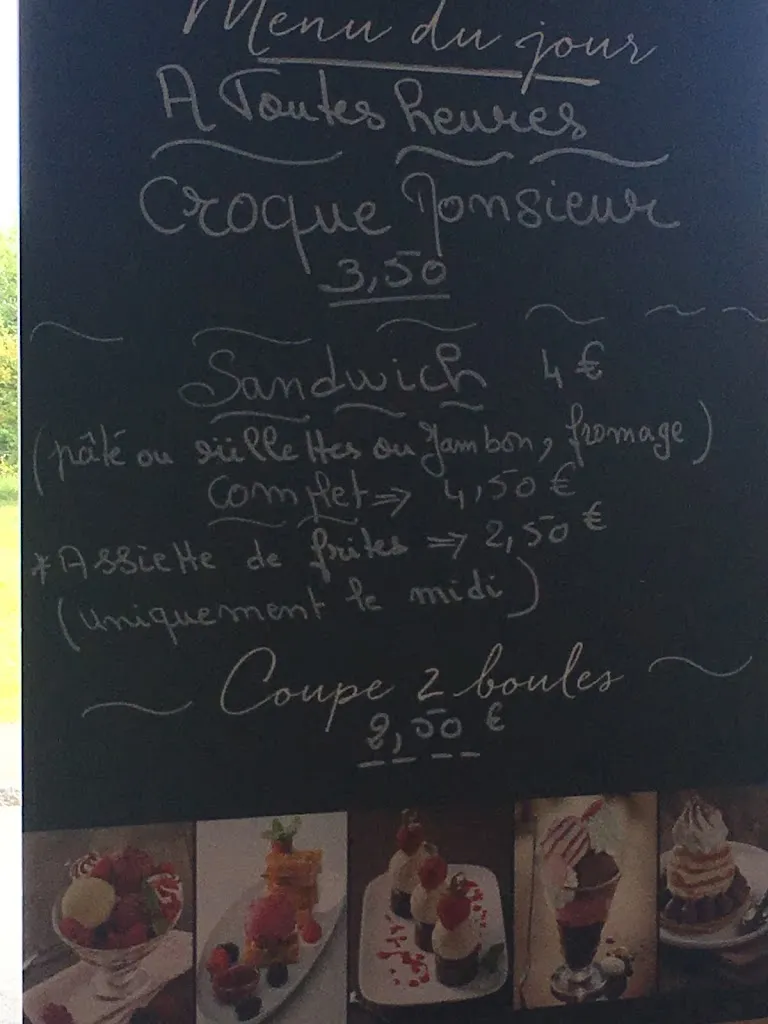 Menu du jour
A Toutes heures
Croque Monsieur
3,50
Sandwich 4 €
(pâté ou rillettes ou Jambon, fromage)
Complet => 4,50 €
*Assiette de frites => 2,50 €
(uniquement le midi)
Coupe 2 boules
2,50 €